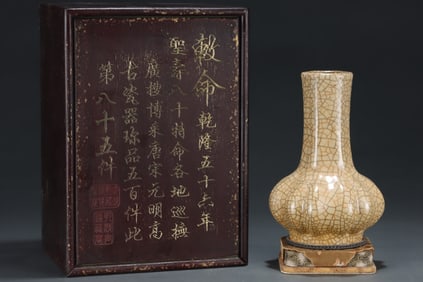 敕命乾隆五十六年
聖壽八十特命各地巡撫
廣搜博采唐宋元明高
古瓷器珍品五百件此
第八十五件